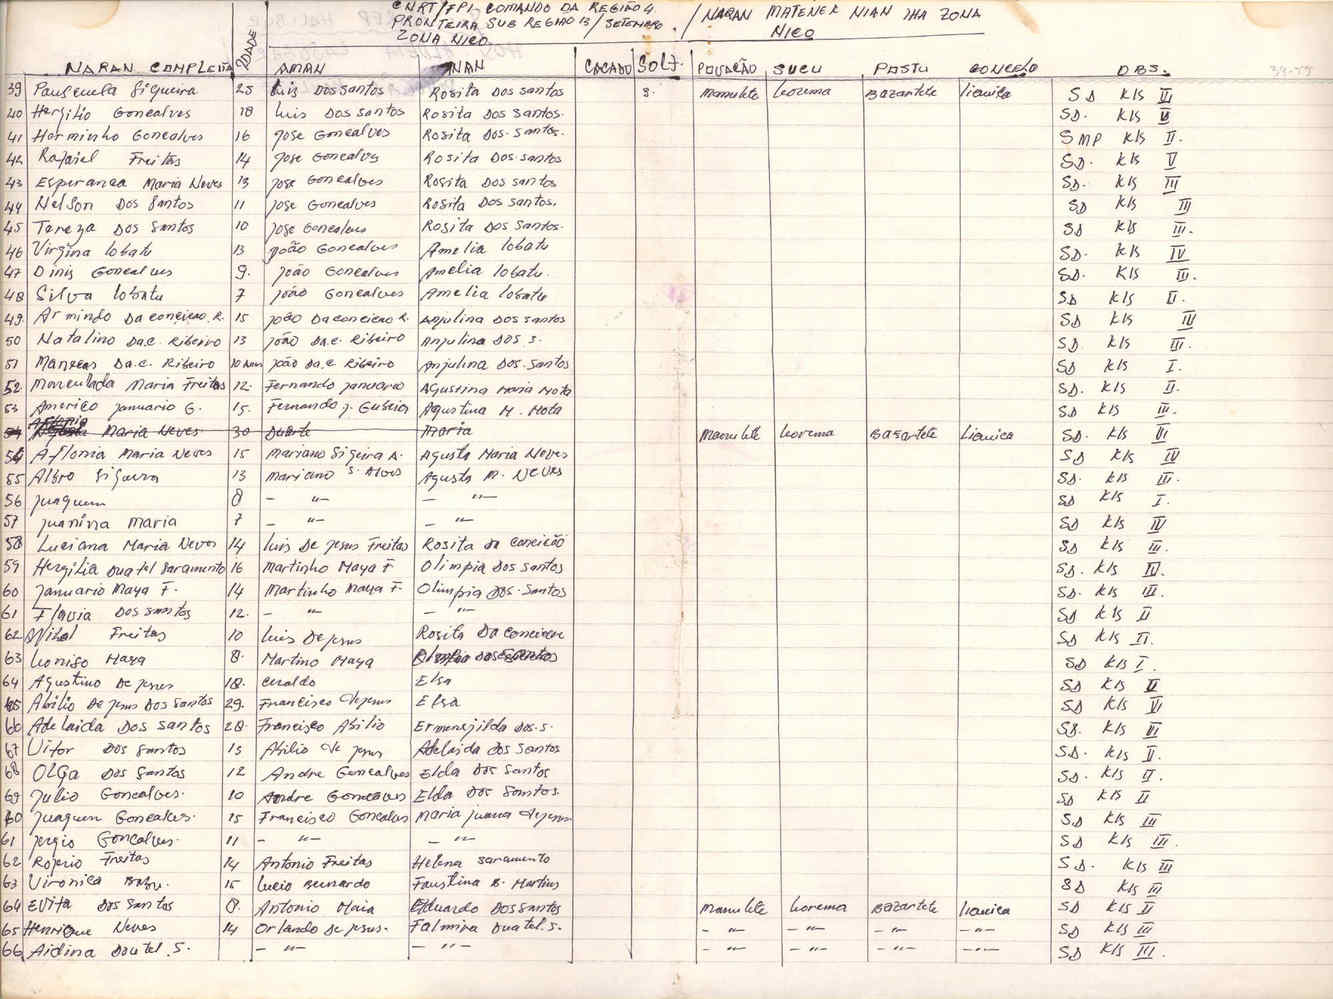 CNRT/FPI-COMANDO DA REGIÃO 4 / NARAN MATENEK NIAN IHA ZONA
FRONTEIRA SUB REGIÃO 13/SETEMBRO / NICO
ZONA NICO
NARAN COMPLETA IDADE AMAN INAN CACADO SOLT. POVOAÇÃO SUCU POSTU CONCELO OBS.
39 Siqueira 25 Luis Dos santos Rosita Dos santos S. Manulete Leorema Bazartete Liquica SD KLS III
40 Hergilio Goncalves 18 Luis Dos santos Rosita Dos santos. SD. KLS VI
41 Herminho Goncalves 16 Jose Goncalves Rosita Dos santos. SMP KLS II.
42 Rafaiel Freitas 14 Jose Goncalves Rosita Dos santos SD. KLS V
43 Esperanca Maria Neves 13 Jose Goncalves Rosita Dos santos SD. KLS III
44 Nelson Dos Santos 11 Jose Goncalves Rosita Dos santos. SD KLS III
45 Tereza Dos Santos 10 Jose Goncalves Rosita Dos santos. SD KLS III.
46 Virgina Lobatu 13 João Goncalves Amelia Lobatu SD. KLS IV
47 Dinis Goncalves 9. João Goncalves Amelia Lobatu. SD. KLS III.
48 Silva Lobatu 7 João Goncalves Amelia Lobatu SD KLS II.
49. Armindo Da conceicao R. 15 João Da conceicao R. Anjulina Dos santos SD KLS IV
50 Natalino Da.C. Ribeiro 13 João Da.C. Ribeiro Anjulina Dos S. SD. KLS III.
51 Da.C. Ribeiro 10 João Da.C Ribeiro Anjulina Dos. Santos SD KLS I.
52 Maria Freitas 12. Fernando Januario Agustina Maria Mota SD. KLS II.
53 Americo Januario G. 15. Fernando J. Agustina M. Mota SD KLS III.
Maria Neves 30 Duarte Maria Manulete Leorema Bazartete Liquica SD. KLS VI
54 Aflonia Maria Neves 15 Mariano Sigeira A. Agusta Maria Neves SD KLS IV
55 13 Mariano S. Alves Agusta M. Neves SD. KLS III.
56 Juaquem 8 - " - - " - SD KLS I.
57 Juanina Maria 7 - " - - " - SD KLS IV
58 Luciana Maria Neves 14 Luis De Jesus Freitas Rosita da Conceicão SD KLS III.
59 Hergilia Duatel Saramento 16 Martinho Maya F Olimpia Dos santos SD. KLS IV.
60 Januario Maya F. 14 Martinho Maya F. Olimpia Dos. Santos SD. KLS III.
61 Flavia Dos santos 12. - " - - " - SD KLS II
62 Freitas 10 Luis De Jesus Rosita Da conceicao SD KLS II.
63 Leoniso Maya 8. Martino Maya SD KLS I.
64 Agustino De Jesus 18. Ceraldo Elsa SD KLS VI
65 Abilio De Jesus Dos Santos 29. Francisco de Jesus Elsa SD KLS VI
66 Adelaida Dos santos 28. Francisco Abilio Ermenejilda Dos.S. SD. KLS VI
67 Vitor Dos Santos 13 Abilio de Jesus Adelaida dos Santos SD. KLS II.
68 Olga Dos Santos 12 Andre Goncalves Elda Dos Santos SD. KLS II.
69 Julio Goncalves. 10 Andre Goncalves Elda Dos Santos. SD KLS II
60 Juaquem Goncalves. 15 Francisco Goncalves Maria Juana de Jesus SD KLS III
61 Jergio Goncalves. 11 - " - - " - SD KLS III.
62 Rogerio Freitas 14 Antonio Freitas Helena Saramento SD. KLS III
63 Vironica 15 Lucio Bernardo Faustina B. Martins SD KLS III
64 Evita Dos Santos 8. Antonio Maia Eduardo Dos Santos Manulete Leorema Bazartete Liquica SD KLS II
65 Henrique Neves 14 Orlando de Jesus. Falmira Duatel.S. - " - - " - - " - - " - SD KLS III
66 Aidina Doutel .S. - " - - " - - " - - " - - " - - " - SD KLS III.